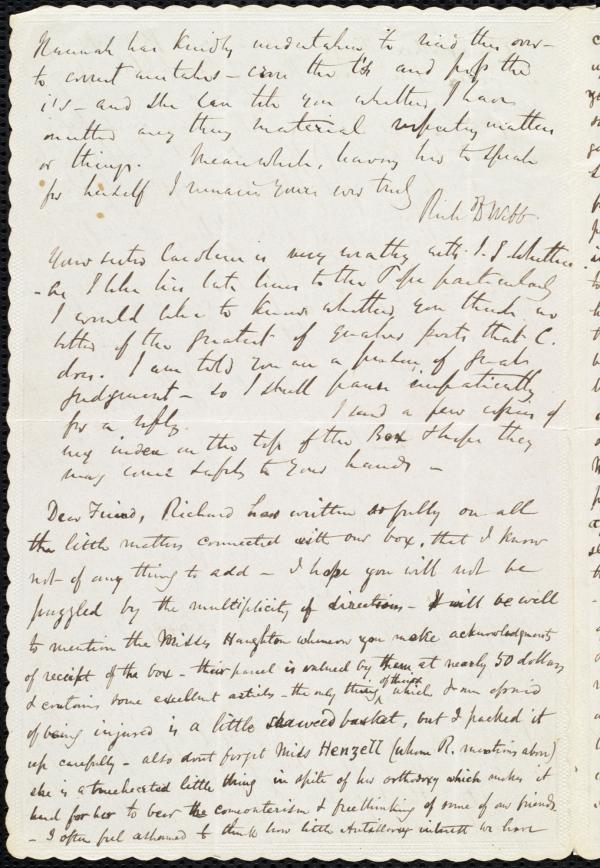 Hannah has kindly undertaken to read this over –
to correct mistakes – cross the t's and pop the
i's – and she can tell you whether I have
omitted any thing material respecting matters
or things. Meanwhile, leaving her to speak
for herself I remain Yours very truly
Rich d D Webb.
Your sister Caroline is very wrathy with J. G. Whittier.
– as I like his late lines to the Pope particularly
I would like to know whether you think as
little of the greatest of quaker poets that C.
does. I am told you are a person of great
judgment – so I shall pause impatiently
for a reply. I send a few copies of
my index on the top of the Box I hope they
may come safely to your hands –
Dear Friend, Richard has written so fully on all
the little matters connected with our box, that I know
not of any thing to add – I hope you will not be
puzzled by the multiplicity of directions – It will be well
to mention the Misses Haughton whenever you make acknowledgments
of receipt of the box – their parcel is valued by them at nearly 50 dollars
& contains some excellent articles – the only thing of theirs which I am afraid
of being injured is a little seaweed basket, but I packed it
up carefully – also dont forget Miss Henzell (whom R. mentions above)
she is a truehearted little thing in spite of her orthodoxy which makes it
hard for her to bear the comeouterism & freethinking of some of our friends
– I often feel ashamed to think how little Antislavery interest we have